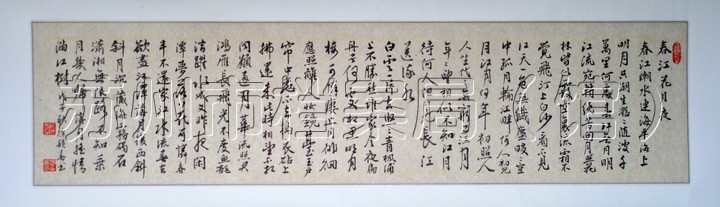 春江花月夜
春江潮水連海平海上
明月共潮生灩灩隨波千
萬里何處春江無月明
江流宛轉繞芳甸月照花
林皆似霰空裏流霜不
覺飛汀上白沙看不見
江天一色無纖塵皎皎空
中孤月輪江畔何人初見
月江月何年初照人
人生代代無窮已江月
年年望相似不知江月
待何人但見長江
送流水
白雲一片去悠悠青楓浦
上不勝愁誰家今夜扁
舟子何處相思明月
樓可憐樓上月徘徊
應照離人妝鏡台玉戶
帘中卷不去搗衣砧上
拂還來此時相望不相
聞願逐月華流照君
鴻雁長飛光不度魚龍
潛躍水成文昨夜閑
潭夢落花可憐春
半不還家江水流春去
欲盡江潭落月復西斜
斜月沉沉藏海霧碣石
瀟湘無限路不知乘
月幾人歸落月搖情
滿江樹